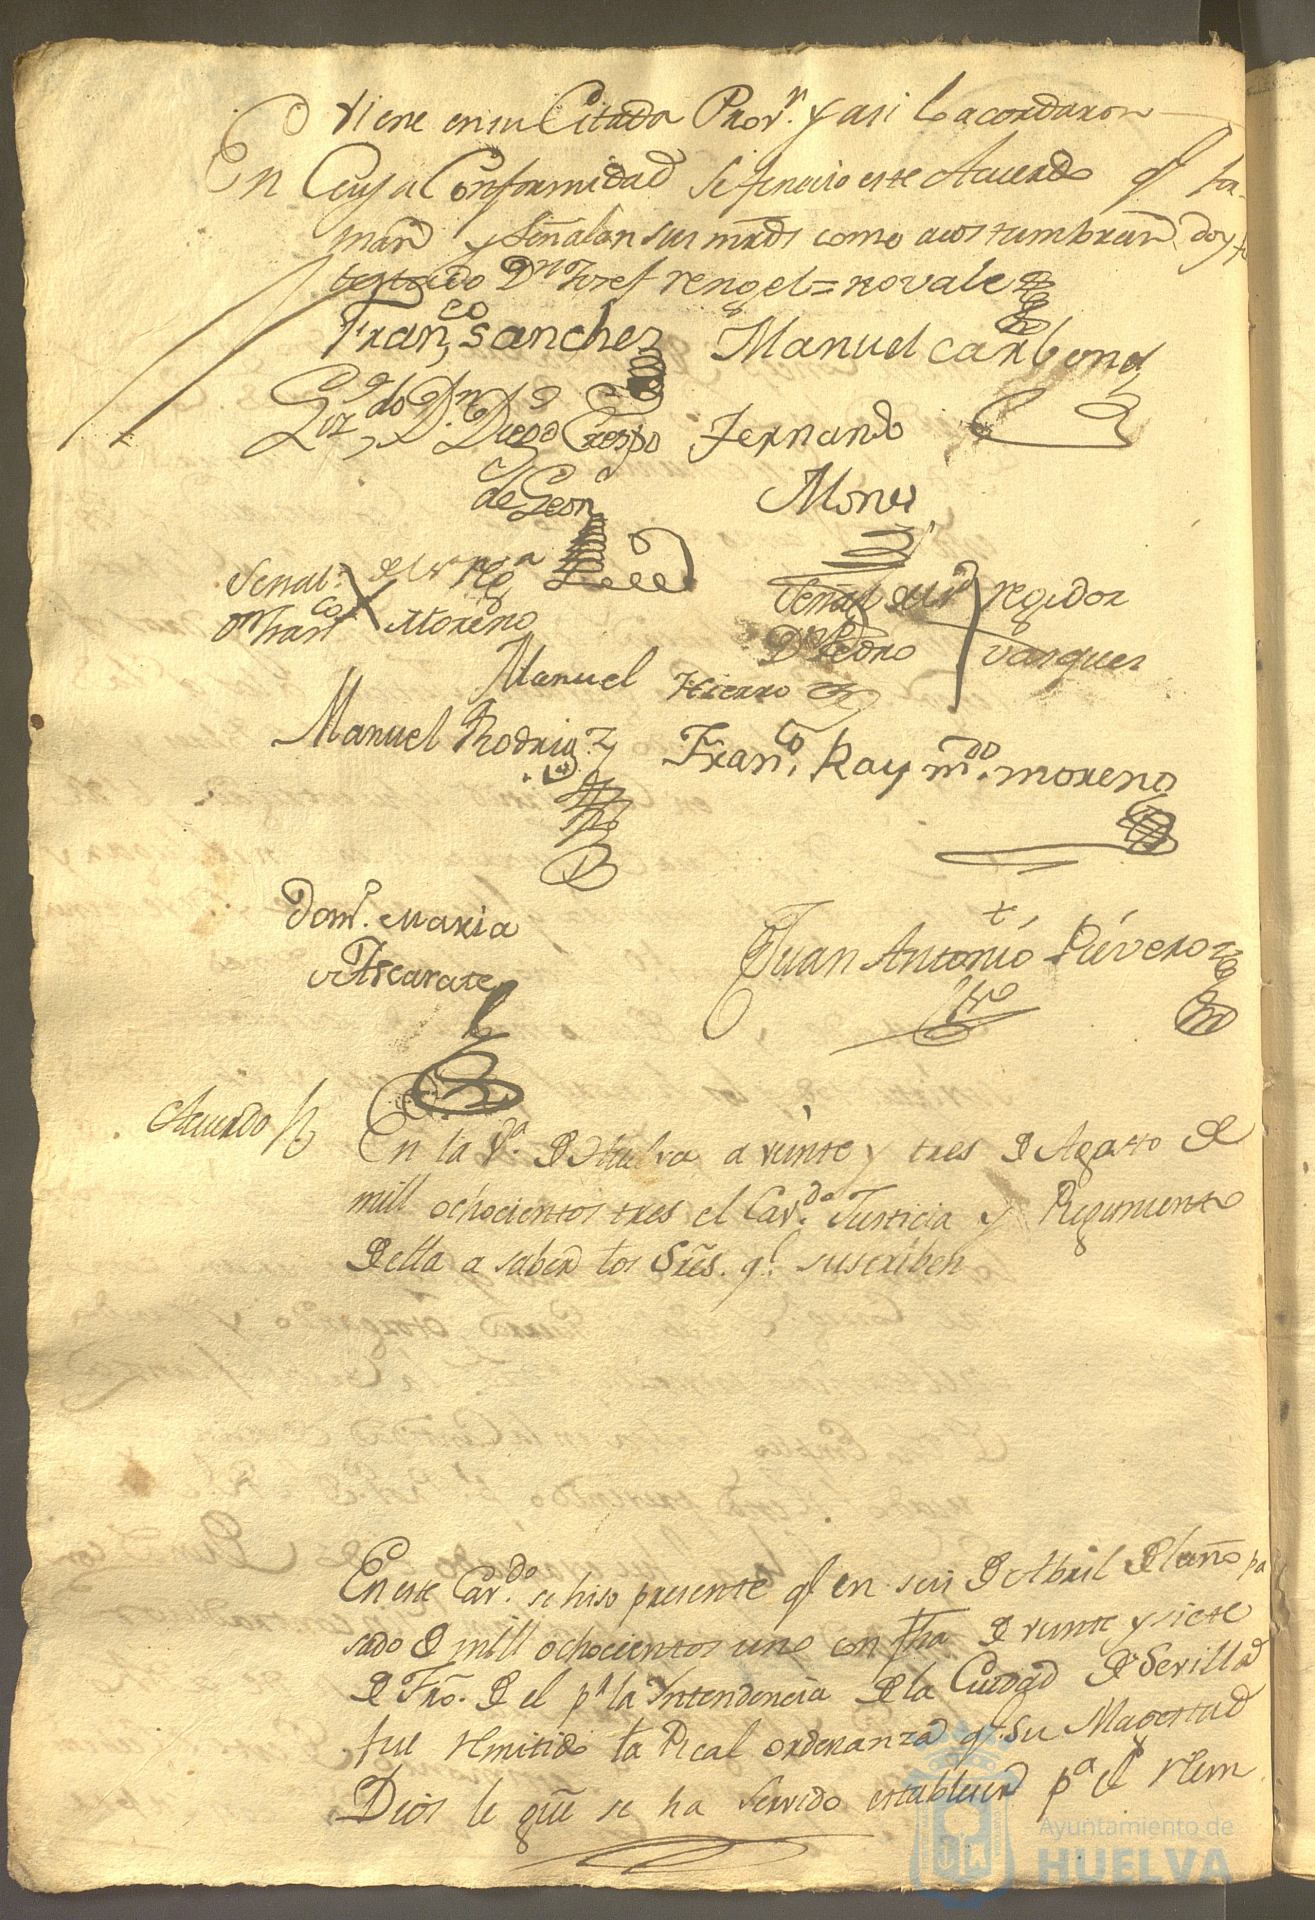 viene en su Citada Prov.n y asi lo acordaron
En Cuya Conformidad se fenecio este Acuerdo q.e fir
marn y señalan sus mrds como acostumbran doy fe
testado D.n Josef rengel = no vale
Fran,co sanchez Manuel carbonel
Liz,do D.n Diego Crespo Fernando
de Leon Mon
Señal del s.r reg.a Señal del s.r regidor
D.n Fran.co Moreno D.n Pedro vasquez
Manuel Hierro
Manuel Rodrig.z Fran.co Raym.do moreno
Dom.o Maria Juan Antonio Rivero
Ascarate
Acuerdo En la V.a de Huelva a veinte y tres de Agosto de
mill ochocientos tres el Cav.do Justicia y Regimiento
de ella a saber los Sres. q.e suscriben
En este Cav.do se hiso presente q.e en seis de Abril del año pa
sado de mill ochocientos uno con fha de veinte y siete
de Fro. de el p.r la Intendencia de la Ciudad de Sevilla
fue remitido la Real ordenanza q.e Su Magestad
Dios le gue se ha servido establecer p.a el Reem
Ayuntamiento de
HUELVA